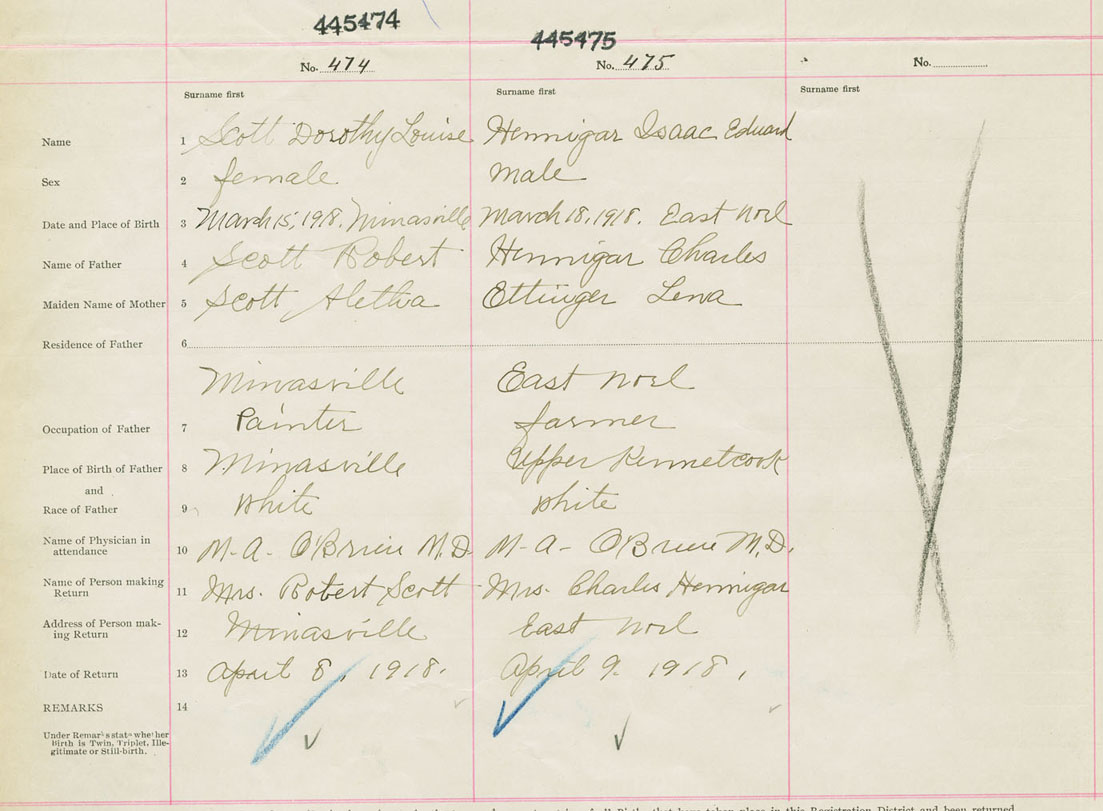 445474
445475
No. 474
No. 475
No.
Surname first
Surname first
Surname first
Name 1 Scott Dorothy Louise Hennigar Isaac Edward
Sex 2 female male
Date and Place of Birth 3 March 15, 1918. Minasville March 18, 1918. East Noel
Name of Father 4 Scott Robert Hennigar Charles
Maiden Name of Mother 5 Scott Aletha Ettinger Lena
Residence of Father 6
Minasville East Noel
Occupation of Father 7 Painter farmer
Place of Birth of Father 8 Minasville Upper Kennetcook
and
Race of Father 9 White White
Name of Physician in
attendance 10 M. A. O'Brien M.D. M. A. O'Brien M.D.
Name of Person making
Return 11 Mrs. Robert Scott Mrs. Charles Hennigar
Address of Person mak-
ing Return 12 Minasville East Noel
Date of Return 13 April 8, 1918. April 9. 1918,
REMARKS 14
Under Remarks state whether
Birth is Twin, Triplet, Ille-
gitimate or Still-birth.
that have taken place in this Registration District and been returned